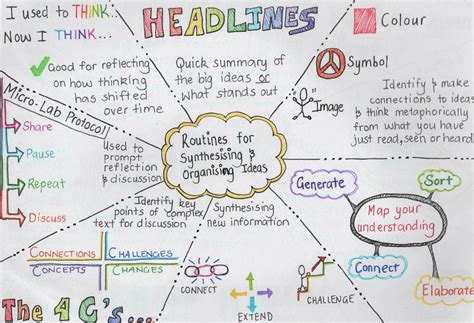 I used to THINK...
Now I THINK...
Good for reflecting
on how thinking
has shifted
over time
HEADLINES
Quick summary of
the big ideas or
what stands out
Colour
Symbol
Image
Identify & make
connections to ideas
& think metaphorically
from what you have
just read, seen or heard
Micro-Lab Protocol
Share
Pause
Repeat
Discuss
Used to
prompt
reflection
& discussion
Routines for
Synthesising &
Organising Ideas
Generate
Sort
Map your
understanding
Connect
Elaborate
Identify key
points of complex
text for discussion
CONNECTIONS
CHALLENGES
CONCEPTS
CHANGES
The 4 C's...
Synthesising
new information
CONNECT
EXTEND
CHALLENGE